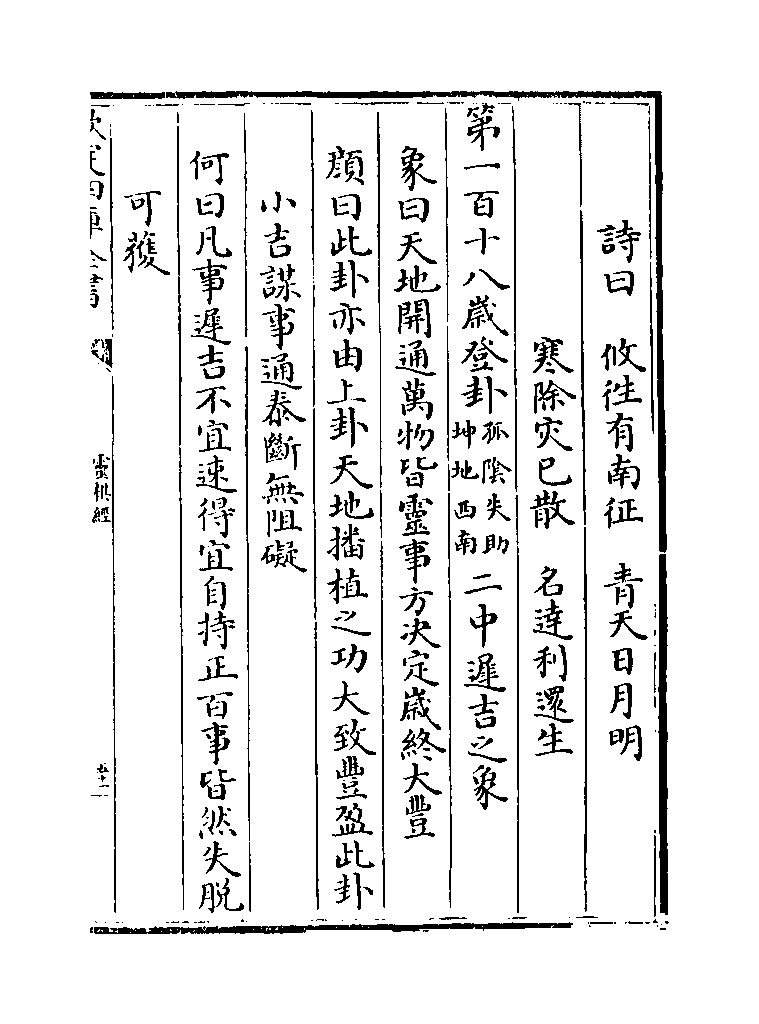 詩曰　攸徃有南征　青天日月明
寒除灾已散　名達利還生
第一百十八歲登卦孤陰失助坤地西南二中遲吉之象
象曰天地開通萬物皆靈事方决定歲終大豐
顔曰此卦亦由上卦天地播植之功大致豐盈此卦
小吉謀事通泰斷無阻礙
何曰凡事遲吉不宜速得宜自持正百事皆然失脱
可獲
欽定四庫全書
靈棋經
五十一